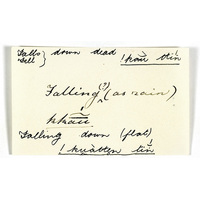 Falls } down dead
Fell } !kau thin
Falling (?) (as rain)
khau
Falling down (flat)
!kuatten tin